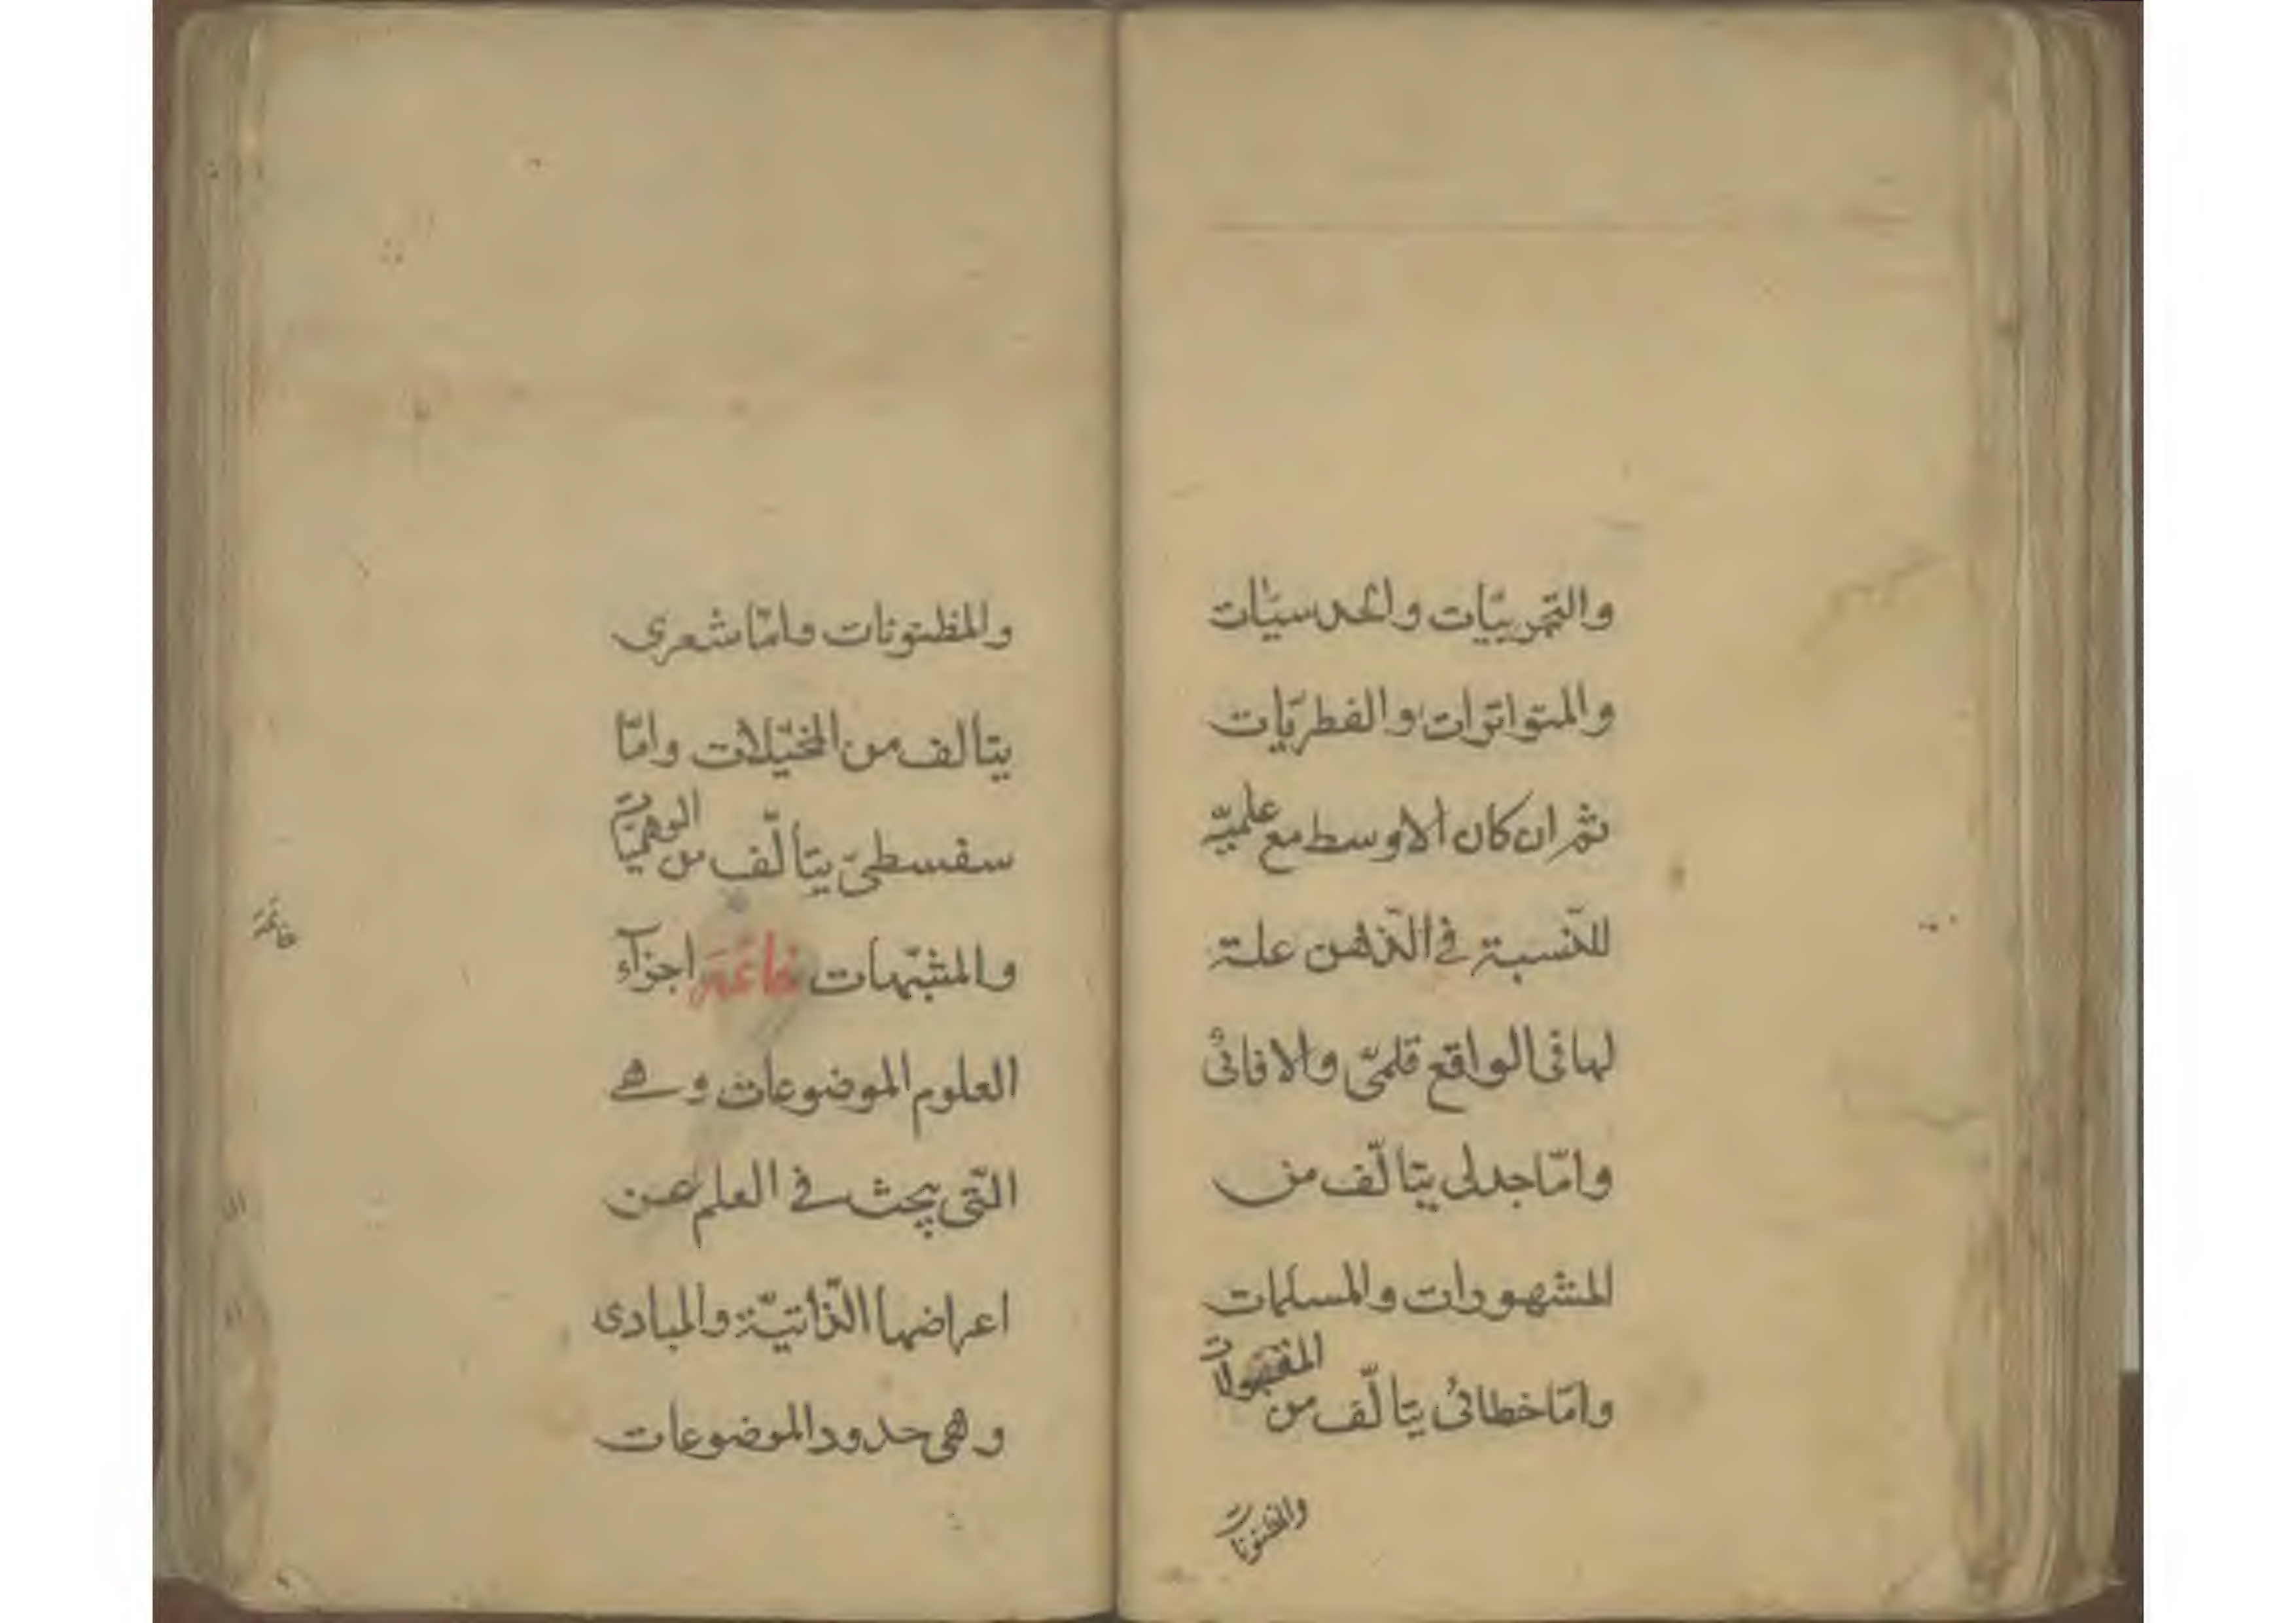 والتجربيّات والحدسيّات
والمتواترات والفطريّات
ثم ان كان الاوسط مع علميته
للنّسبة في الذّهن علة
لها في الواقع فلمّى والا فانّى
وامّا جدلى يتالّف من
المشهورات والمسلمات
وامّا خطابى يتالّف من المقبولات
والمظنونات
والمظنونات وامّا شعرى
يتالف من المخيّلات وامّا
سفسطىّ يتالّف من الوهميّات
والمشبّهات خاتمة اجزآء
العلوم الموضوعات وهى
التّى يبحث في العلم عن
اعراضها الذّاتيّة والمبادى
وهى حدود الموضوعات
خاتمة